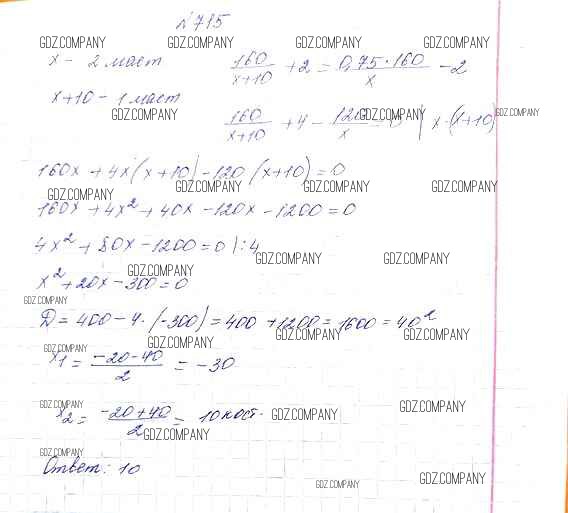 №715
GDZ.COMPANY GDZ.COMPANY GDZ.COMPANY GDZ.COMPANY
x - 2 маст 160/(x+10) + 2 = 0,75·160/x - 2
x+10 - 1 маст
GDZ.COMPANY GDZ.COMPANY GDZ.COMPANY
160/(x+10) + 4 - x | x·(x+10)
160x + 4x(x+10) - 120(x+10) = 0
GDZ.COMPANY GDZ.COMPANY GDZ.COMPANY GDZ.COMPANY
160x + 4x² + 40x - 120x - 1200 = 0
4x² + 80x - 1200 = 0 |:4
GDZ.COMPANY GDZ.COMPANY
GDZ.COMPANY
x² + 20x - 300 = 0
GDZ.COMPANY
D = 400 - 4·(-300) = 400 + 1200 = 1600 = 40²
GDZ.COMPANY GDZ.COMPANY GDZ.COMPANY GDZ.COMPANY
x1 = (-20-40)/2 = -30
GDZ.COMPANY GDZ.COMPANY GDZ.COMPANY
x2 = (-20+40)/2 = 10 кост.
GDZ.COMPANY
GDZ.COMPANY
Ответ: 10
GDZ.COMPANY GDZ.COMPANY